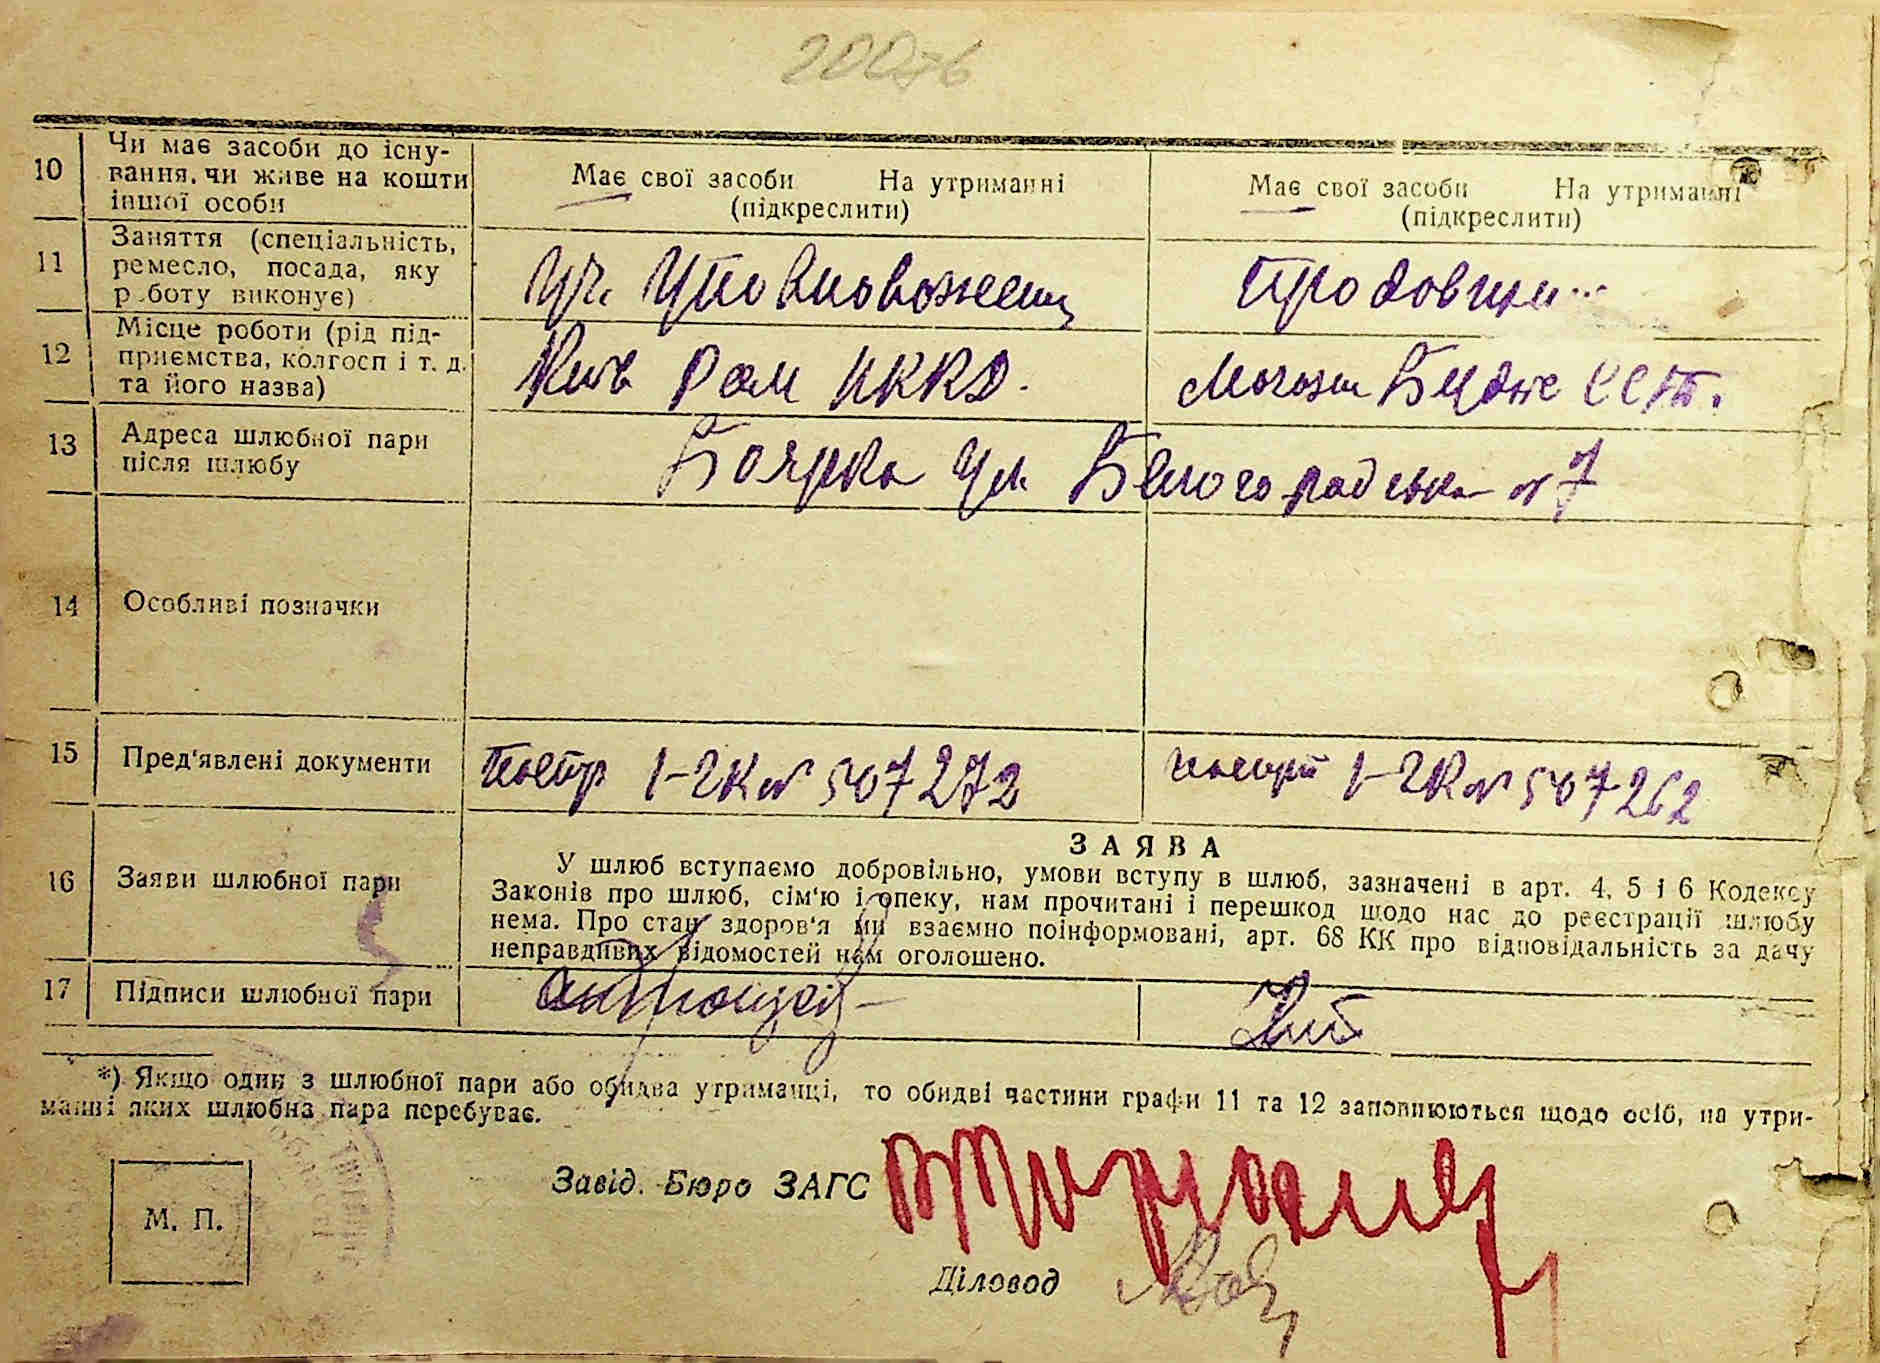 10 Чи має засоби до існу-
вання, чи живе на кошти
іншої особи
Має свої засоби На утриманні
(підкреслити)
Має свої засоби На утриманні
(підкреслити)
11 Заняття (спеціальність,
ремесло, посада, яку
роботу виконує)
Уч. Уповноважений
Продовщи
12 Місце роботи (рід під-
приємства, колгосп і т. д.
та його назва)
Київ НККД.
Магазин ССТ.
13 Адреса шлюбної пари
після шлюбу
Боярка ул. Белогорадська № 7
14 Особливі позначки
15 Пред'явлені документи
1-ЧК № 507272
1-ЧК № 507262
16 Заяви шлюбної пари
ЗАЯВА
У шлюб вступаємо добровільно, умови вступу в шлюб, зазначені в арт. 4, 5 і 6 Кодексу
Законів про шлюб, сім'ю і опеку, нам прочитані і перешкод щодо нас до реєстрації шлюбу
нема. Про стан здоров'я ми взаємно поінформовані, арт. 68 КК про відповідальність за дачу
неправдивих відомостей нам оголошено.
17 Підписи шлюбної пари
*) Якщо один з шлюбної пари або обидва утриманці, то обидві частини графи 11 та 12 заповнюються щодо осіб, на утри-
манні яких шлюбна пара перебуває.
Завід. Бюро ЗАГС
М. П.
Діловод